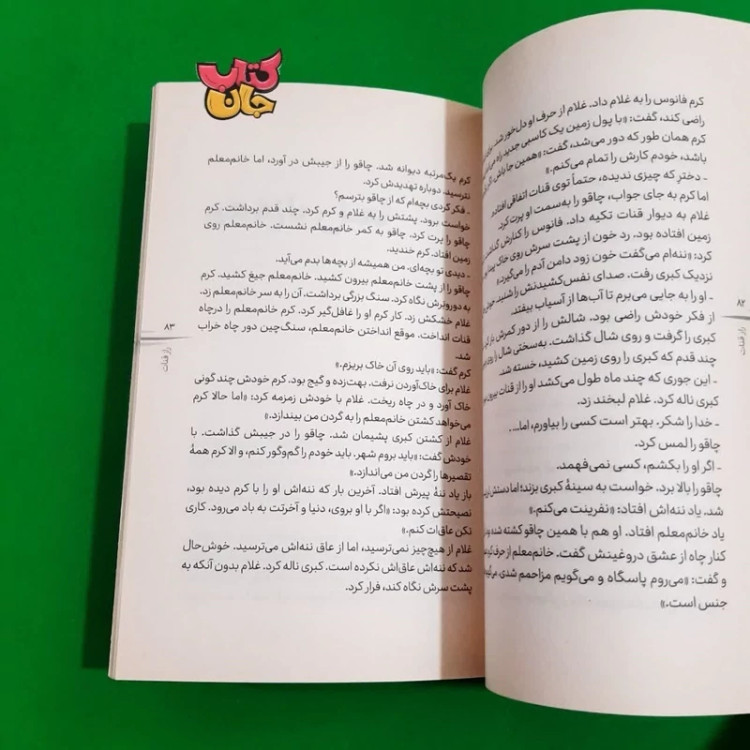 کتاب
جان
کرم فانوس را به غلام داد. غلام از حرف او دل‌خور شد.
راضی کند، گفت: «با پول زمین یک کاسبی جدید را
کرم همان طور که دور می‌شد، گفت: «همین جا باش.
باشد، خودم کارش را تمام می‌کنم.»
- دخترِ که چیزی ندیده، حتماً توی قنات اتفاقی افتاد
اما کرم به جای جواب، چاقو را به‌سمت او پرت کرد
غلام به دیوار قنات تکیه داد. فانوس را کنارش
زمین افتاده بود. رد خون از پشت سرش روی خاک
کرد: «ننه‌ام می‌گفت خون زود دامن آدم را می‌گیرد.»
نزدیک کبری رفت. صدای نفس‌کشیدنش را شنید.
- او را به جایی می‌برم تا آب‌ها از آسیاب بیفتد.
از فکر خودش راضی بود. شالش را از دور کمرش باز
کبری را گرفت و روی شال گذاشت. به‌سختی شال را روی
چند قدم که کبری را روی زمین کشید، خسته شد.
- این جوری که چند ماه طول می‌کشد او را از قنات بیرون
کبری ناله کرد. غلام لبخند زد.
- خدا را شکر. بهتر است کسی را بیاورم، اما....
چاقو را لمس کرد.
- اگر او را بکشم، کسی نمی‌فهمد.
چاقو را بالا برد. خواست به سینهٔ کبری بزند؛ اما دستش
شد. یاد ننه‌اش افتاد: «نفرینت می‌کنم.»
یاد خانم‌معلم افتاد. او هم با همین چاقو کشته شده بود.
کنار چاه از عشق دروغینش گفت. خانم‌معلم از حرف
و گفت: «می‌روم پاسگاه و می‌گویم مزاحمم شدی.
جنس است.»
۸۲
راز قنات
کرم یک‌مرتبه دیوانه شد. چاقو را از جیبش در آورد، اما خانم‌معلم
نترسید. دوباره تهدیدش کرد.
- فکر کردی بچه‌ام که از چاقو بترسم؟
خواست برود. پشتش را به غلام و کرم کرد. چند قدم برداشت. کرم
چاقو را پرت کرد. چاقو به کمر خانم‌معلم نشست. خانم‌معلم روی
زمین افتاد. کرم خندید.
- دیدی تو بچه‌ای. من همیشه از بچه‌ها بدم می‌آید.
چاقو را از پشت خانم‌معلم بیرون کشید. خانم‌معلم جیغ کشید. کرم
به دوروبرش نگاه کرد. سنگ بزرگی برداشت. آن را به سر خانم‌معلم زد.
غلام خشکش زد. کار کرم او را غافل‌گیر کرد. کرم خانم‌معلم را درچاه
قنات انداخت. موقع انداختن خانم‌معلم، سنگ‌چین دور چاه خراب
شد.
کرم گفت: «باید روی آن خاک بریزم.»
غلام برای خاک‌آوردن نرفت. بهت‌زده و گیج بود. کرم خودش چند گونی
خاک آورد و در چاه ریخت. غلام با خودش زمزمه کرد: «اما حالا کرم
می‌خواهد کشتن خانم‌معلم را به گردن من بیندازد.»
غلام از کشتن کبری پشیمان شد. چاقو را در جیبش گذاشت. با
خودش گفت: «باید بروم شهر. باید خودم را گم‌وگور کنم، و الا کرم همهٔ
تقصیرها را گردن من می‌اندازد.»
باز یاد ننهٔ پیرش افتاد. آخرین بار که ننه‌اش او را با کرم دیده بود،
نصیحتش کرده بود: «اگر با او بروی، دنیا و آخرتت به باد می‌رود. کاری
نکن عاق‌ات کنم.»
غلام از هیچ‌چیز نمی‌ترسید، اما از عاق ننه‌اش می‌ترسید. خوش‌حال
شد که ننه‌اش عاق‌اش نکرده است. کبری ناله کرد. غلام بدون آنکه به
پشت سرش نگاه کند، فرار کرد.
۸۳
راز قنات